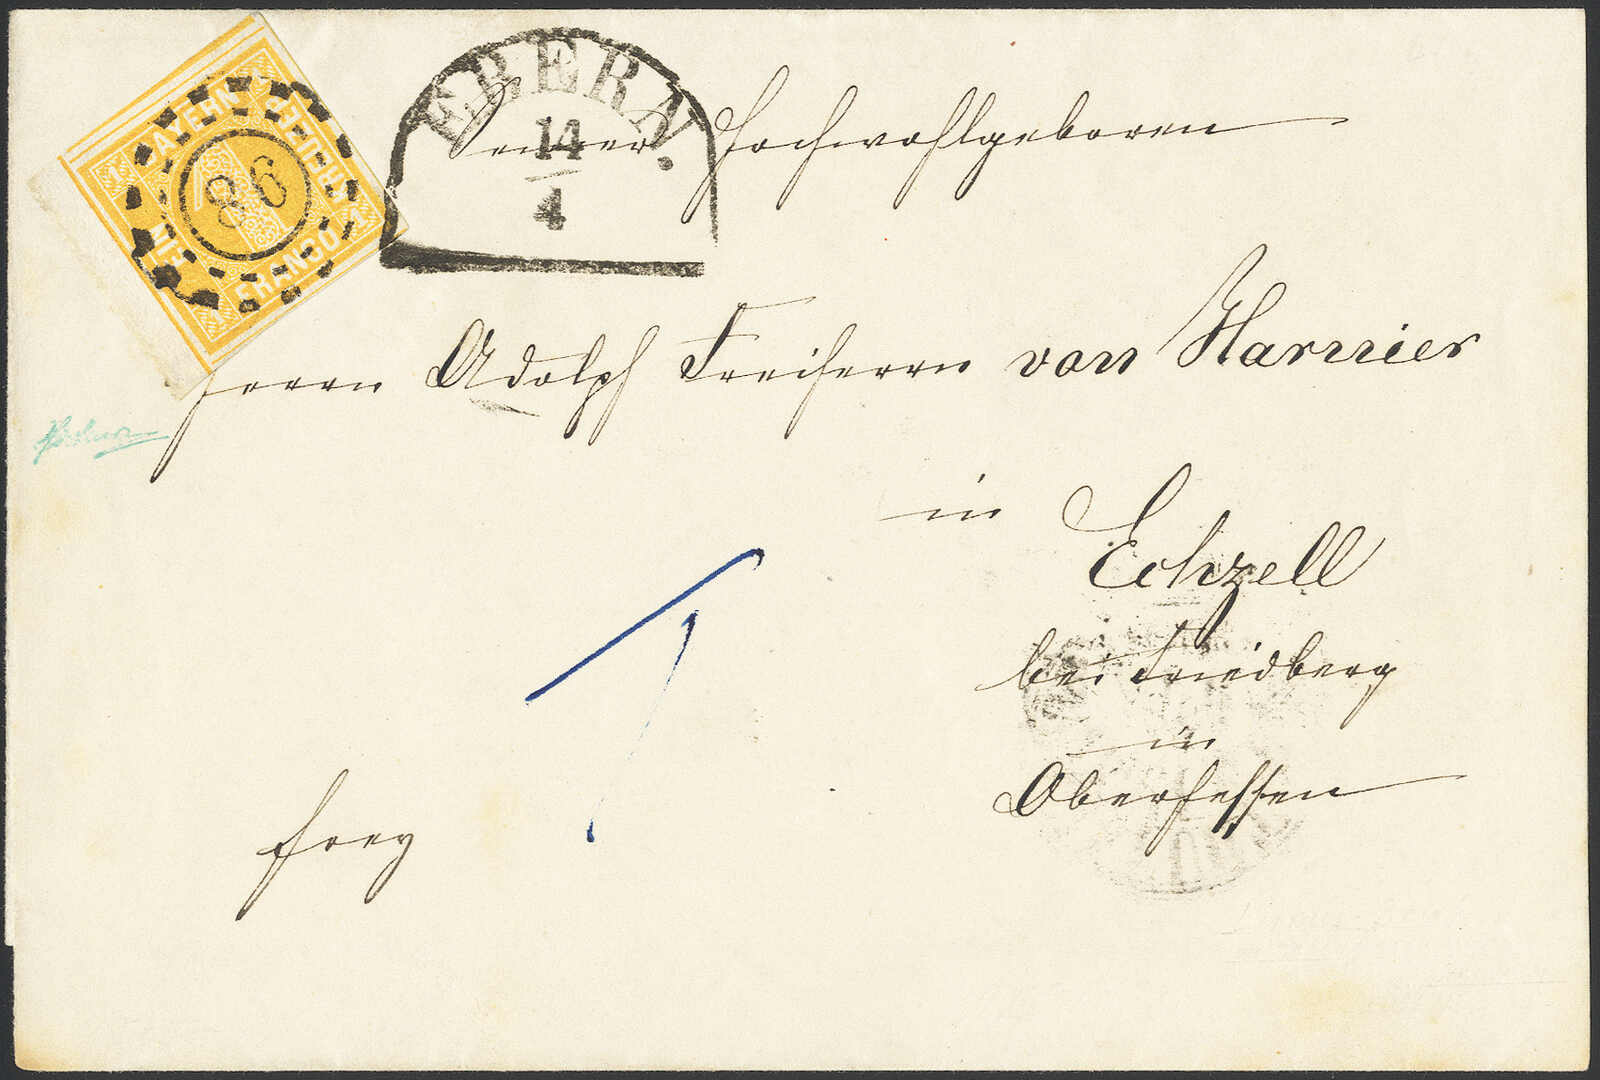 BAYERN
EIN KREUZER
FRANCO
1 1 1 1
86
EBERN.
14
4
Seiner Hochwohlgeboren
Herrn Adolph Freiherrn von Harnier
in
Echzell
bei Friedberg
in
Oberhessen
frey
1